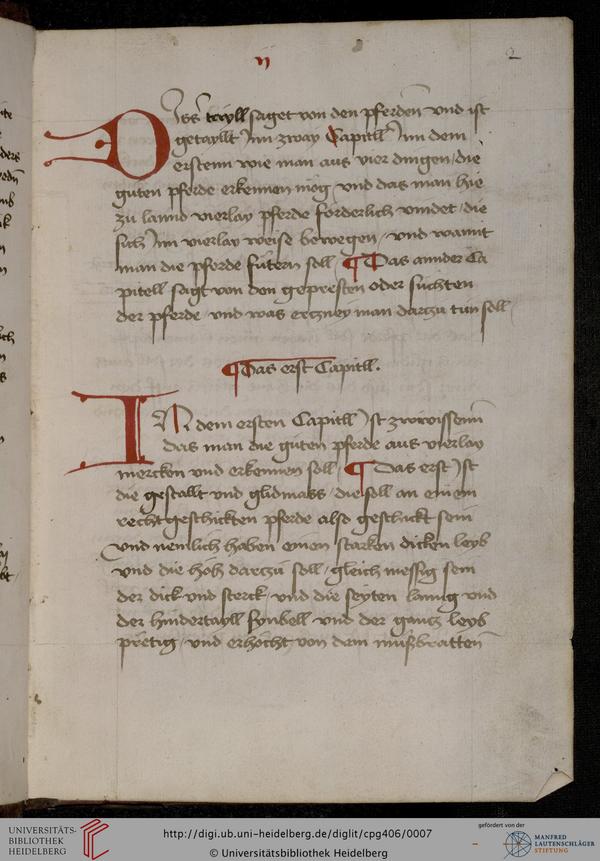 vj
2
Diss tayll saget von den pferden vnd ist
getayllt Inn zway Capitll Inn dem
erstenn wie man aus vier dingen / die
guten pferde erkennen mög vnd das man hie
zu lannd vierlay pferde forderlich vindet / die
sich Inn vierlay weise bewegen / vnd wamit
man die pferde futern soll / ¶ Das annder Ca
pitell sagt von den gepresten oder suchten
der pferde vnd was ercznej man darczu tun soll /
¶ Das erst Capitll.
IN dem ersten Capitll Ist zwwissenn
das man die guten pferde aus vierlay
mercken vnd erkennen soll / ¶ Das erst Ist
die gestallt vnd glidmass / die soll an einem
rechtgeschickten pferde also geschickt sein
vnd nemlich haben einen starken dicken leyb
vnd die höh darczu soll / gleich messig sein
der dick vnd sterck / vnd die seyten lanng vnd
der hindertayll synbell vnd der gantz leyb
pretig / vnd erhöcht von dem mußbratten
UNIVERSITÄTS-
BIBLIOTHEK
HEIDELBERG
http://digi.ub.uni-heidelberg.de/diglit/cpg406/0007
© Universitätsbibliothek Heidelberg
gefördert von der
MANFRED
LAUTENSCHLÄGER
STIFTUNG